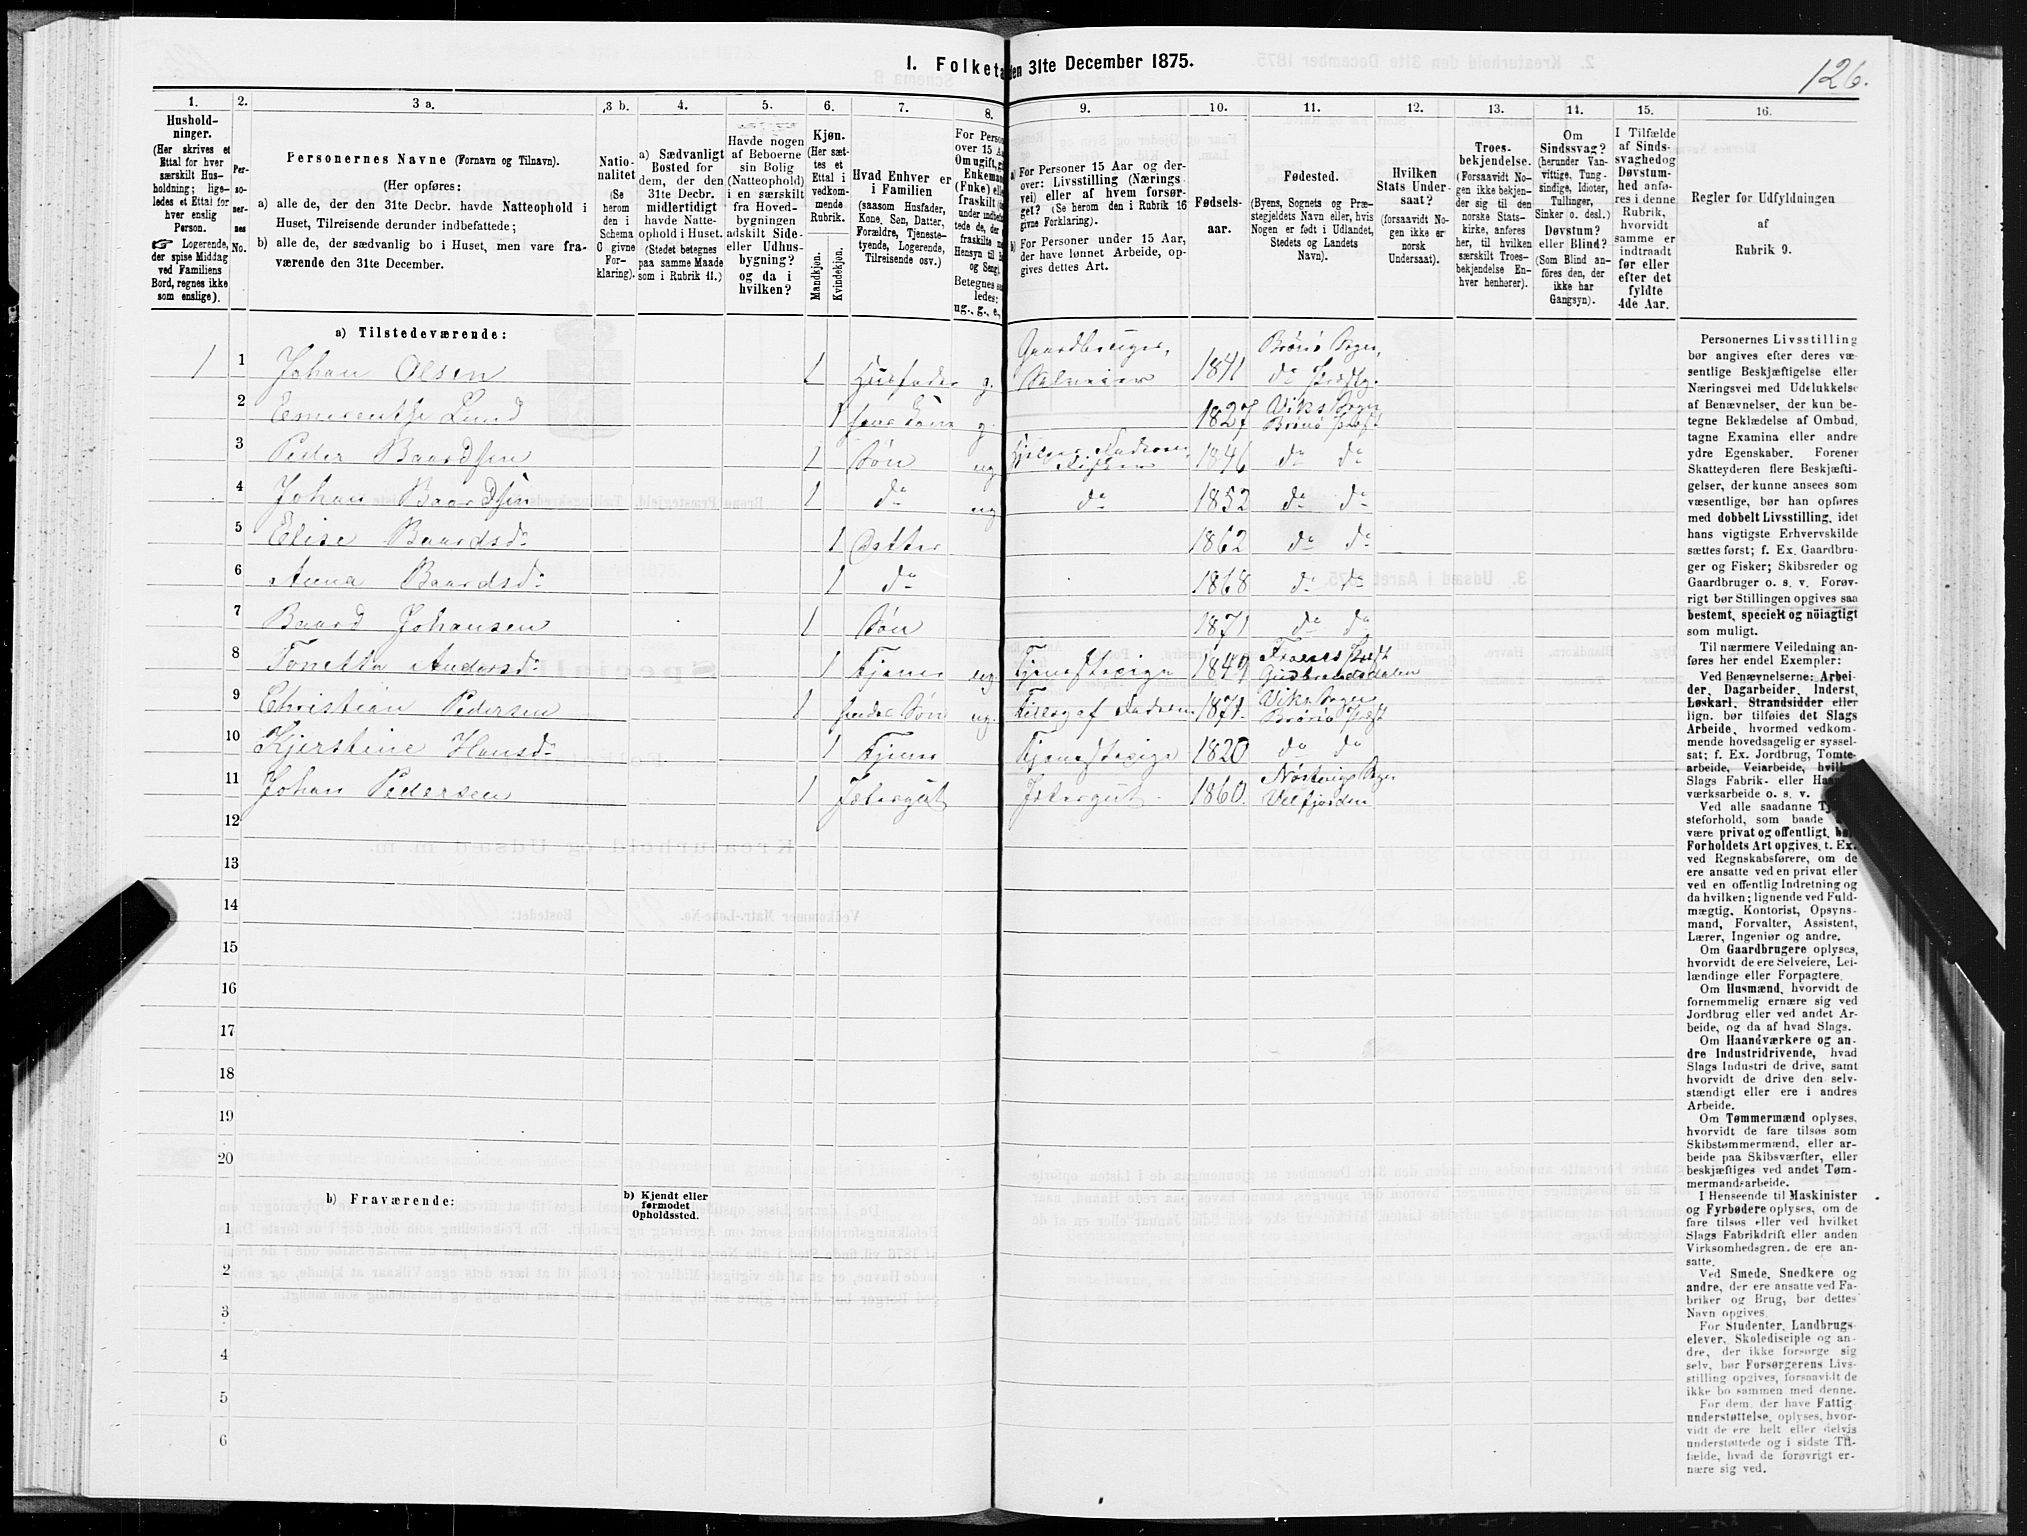 126.
1. Folketæ den 31te December 1875.
1. 2. 3 a. 3 b. 4. 5. 6. 7. 8. 9. 10. 11. 12. 13. 14. 15. 16.
Hushold-
ninger.
(Her skrives et
Ettal for hver
særskilt Hus-
holdning; lige-
ledes et Ettal for
hver enslig
Person.
☞ Logerende,
der spise Middag
ved Familiens
Bord, regnes ikke
som enslige).
Per-
so-
ner-
nes
No.
Personernes Navne (Fornavn og Tilnavn).
(Her opføres:
a) alle de, der den 31te Decbr. havde Natteophold i
Huset, Tilreisende derunder indbefattede;
b) alle de, der sædvanlig bo i Huset, men vare fra-
værende den 31te December.
Natio-
nalitet
(Se
herom
den i
Schema
C givne
For-
klaring).
a) Sædvanligt
Bosted for
dem, der den
31te Decbr.
midlertidigt
havde Natte-
ophold i Huset.
(Stedet betegnes
paa samme Maade
som i Rubrik 11.)
Havde nogen
af Beboerne
sin Bolig
(Natteophold)
i en særskilt
fra Hoved-
bygningen
adskilt Side-
eller Udhus-
bygning?
og da i
hvilken?
Kjøn.
(Her sæt-
tes et
Ettal i
vedkom-
mende
Rubrik.
Mandkjøn.
Kvindekjøn.
Hvad Enhver er
i Familien
(saasom Husfader,
Kone, Søn, Datter,
Forældre, Tjeneste-
tyende, Logerende,
Tilreisende osv.)
For Perso
over 15 A
Om ugift, gi
Enkeman
(Fnke) ell
fraskilt
under indbef
tede de, der
fraskilte
Hensyn til
og Seng).
Betegnes
ledes:
ug., g., e.,
a) For Personer 15 Aar og der-
over: Livsstilling (Nærings-
vei) eller af hvem forsør-
get? (Se herom den i Rubrik 16
givne Forklaring).
b) For Personer under 15 Aar,
der have lønnet Arbeide, op-
gives dettes Art.
Fødsels-
aar.
Fødested.
(Byens, Sognets og Præ-
stegjeldets Navn eller, hvis
Nogen er født i Udlandet,
Stedets og Landets
Navn).
Hvilken
Stats Under-
saat?
(forsaavidt No-
gen ikke er
norsk
Undersaat).
Troes-
bekjendelse.
(Forsaavidt No-
gen ikke bekjen-
der sig til den
norske Stats-
kirke, anføres
her, til hvilken
særskilt Troes-
bekjendelse En-
hver henhører).
Om
Sindssvag?
(herunder Van-
vittige, Tung-
sindige, Idioter,
Tullinger,
Sinker o. desl.)
Døvstum?
eller Blind?
(Som Blind an-
føres den, der
ikke har
Gangsyn).
I Tilfælde
af Sinds-
svaghed og
Døvstum-
hed anfø-
res i denne
Rubrik,
hvorvidt
samme er
indtraadt
før eller
efter det
fyldte
4de Aar.
Regler for Udfyldningen
af
Rubrik 9.
a) Tilstedeværende:
1 1 Johan Olsen 1 Husfader g. Gaardbruger, Selveier 1841 Brønø Sogn, do Præstg.
2 Esmerentse Lund 1 hans Kone g. 1827 Viks Sogn Brønø Præst
3 Peder Baardsen 1 Søn ug 1846 do do
4 Johan Baardsen 1 do ug do 1852 do do
5 Elise Baardsdr 1 Datter 1862 do do
6 Anna Baardsdr 1 do 1868 do do
7 Baard Johansen 1 Søn 1871 do do
8 Tonetta Andersdr 1 Tjener ug. Tjenestepige 1849 Præst Gudbrandsdalen
9 Christian Pedersen 1 hendes Søn ug. 1871. Viks Sogn Brønø Præst
10 Kjerstine Hansdr 1 Tjener Tjenestepige 1820 do do
11 Johan Pedersen 1 Jætergut Jætergut 1860. Sogn Velfjorden
12
13
14
15
16
17
18
19
20
b) Fraværende:
b) Kjendt eller
formodet
Opholdssted.
1
2
3
4
5
6
Personernes Livsstilling
bør angives efter deres væ-
sentlige Beskjæftigelse eller
Næringsvei med Udelukkelse
af Benævnelser, der kun be-
tegne Beklædelse af Ombud,
tagne Examina eller andre
ydre Egenskaber. Forener
Skatteyderen flere Beskjæfti-
gelser, der kunne ansees som
væsentlige, bør han opføres
med dobbelt Livsstilling, idet
hans vigtigste Erhvervskilde
sættes først; f. Ex. Gaardbru-
ger og Fisker; Skibsreder og
Gaardbruger o. s. v. Forøv-
rigt bør Stillingen opgives saa
bestemt, specielt og nöiagtigt
som muligt.
Til nærmere Veiledning an-
føres her endel Exempler:
Ved Benævnelserne: Arbei-
der, Dagarbeider, Inderst,
Løskarl, Strandsidder eller
lign. bør tilføies det Slags
Arbeide, hvormed vedkom-
mende hovedsagelig er syssel-
sat; f. Ex. Jordbrug, Tomte-
arbeide, Veiarbeide, hvilke
Slags Fabrik- eller Haand-
værksarbeide o. s. v.
Ved alle saadanne Tje-
steforhold, som baade
være privat og offentligt, bø
Forholdets Art opgives, t. Ex.
ved Regnskabsførere, om de
ere ansatte ved en privat eller
ved en offentlig Indretning og
da hvilken; lignende ved Fuld-
mægtig, Kontorist, Opsyns-
mand, Forvalter, Assistent,
Lærer, Ingeniør og andre.
Om Gaardbrugere oplyses,
hvorvidt de ere Selveiere, Lei-
lændinge eller Forpagtere.
Om Husmænd, hvorvidt de
fornemmelig ernære sig ved
Jordbrug eller ved andet Ar-
beide, og da af hvad Slags.
Om Haandværkere og an-
dre Industridrivende, hvad
Slags Industri de drive, samt
hvorvidt de drive den selv-
stændigt eller ere i andres
Arbeide.
Om Tømmermænd oplyses,
hvorvidt de fare tilsøs som
Skibstømmermænd, eller ar-
beide paa Skibsværfter, eller
beskjæftiges ved andet Tøm-
mermandsarbeide.
I Henseende til Maskinister
og Fyrbødere oplyses, om de
fare tilsøs eller ved hvilket
Slags Fabrikdrift eller anden
Virksomhedsgren, de ere an-
satte.
Ved Smede, Snedkere og
andre, der ere ansatte ved Fa-
briker og Brug, bør dettes
Navn opgives.
For Studenter, Landbrugs-
elever, Skoledisciple og an-
dre, der ikke forsørge sig
selv, bør Forsørgerens Livs-
stilling opgives, forsaavidt de
ikke bo sammen med denne.
For dem, der have Fattig-
understøttelse, oplyses, hvor-
vidt de ere helt eller delvis
understøttede og i sidste Til-
fælde, hvad de forøvrigt er-
nære sig ved.